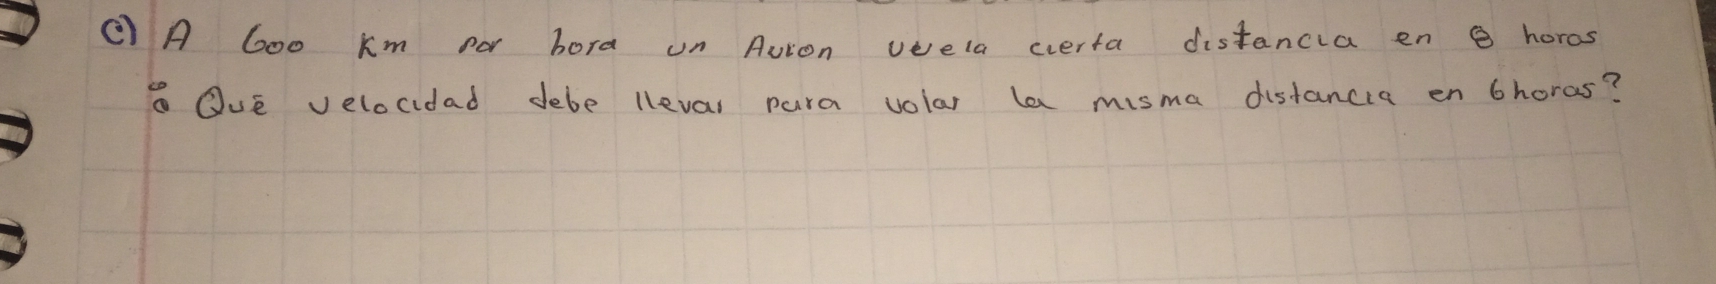 c) A 600 Km por hora un Avion vuela cierta distancia en 8 horas
¿Qué velocidad debe llevar para volar la misma distancia en 6horas?